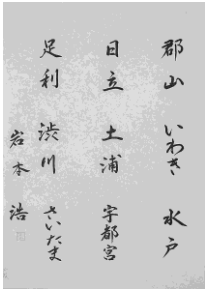 郡山 いわき 水戸
日立 土浦 宇都宮
足利 渋川 さいたま
岩本 浩